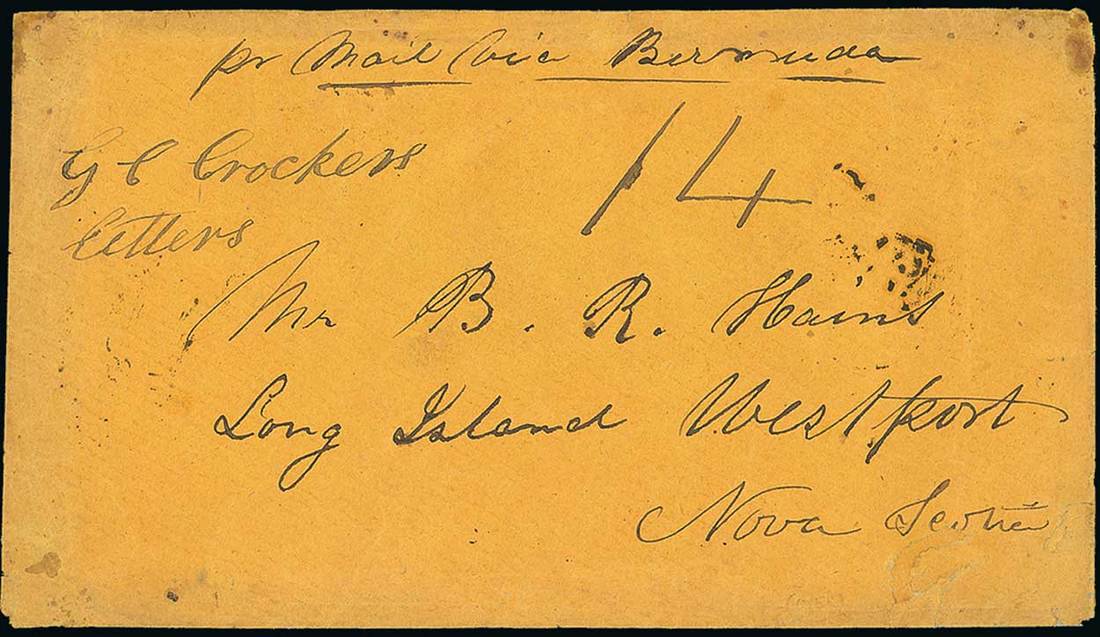 pr Mail via Bermuda
14
G C Crockers
Letters
Mr B. R. Hains
Long Island Westport
Nova Scotia